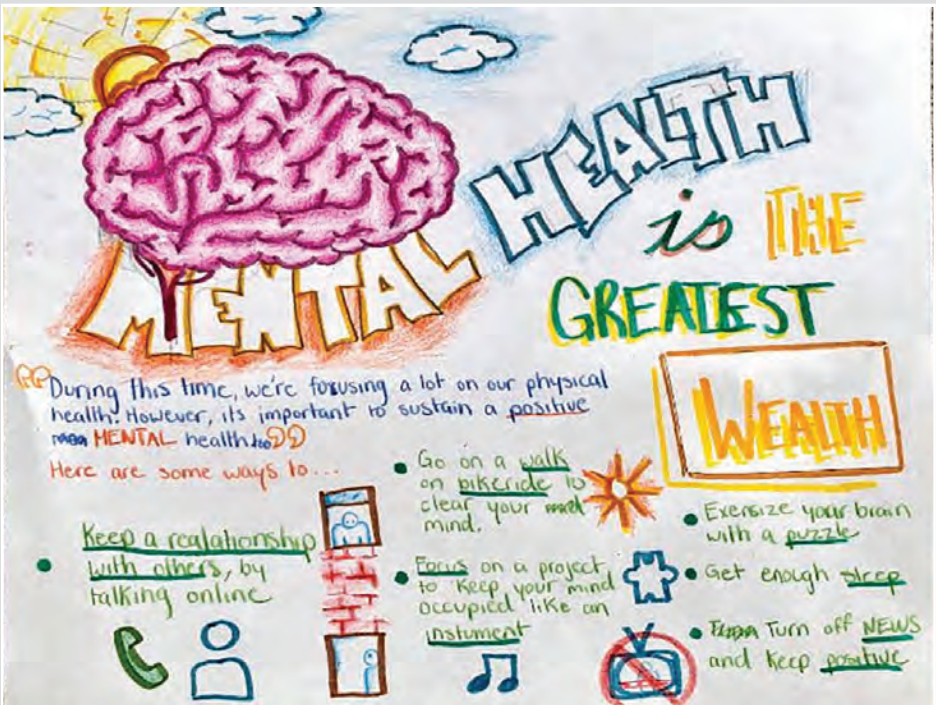 MENTAL
HEALTH
is THE
GREATEST
WEALTH
During this time, we're focusing a lot on our physical
health. However, its important to sustain a positive
MENTAL health too
Here are some ways to...
Keep a realationship
with others, by
talking online
Go on a walk
on bikeride to
clear your
mind.
Focus on a project
to keep your mind
occupied like an
instument
Exersize your brain
with a puzzle
Get enough sleep
Turn off NEWS
and keep positive